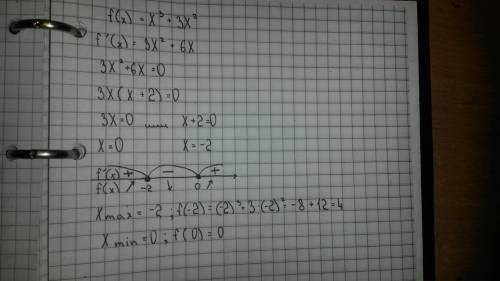 f(x) = x³ + 3x²
f'(x) = 3x² + 6x
3x² + 6x = 0
3x(x + 2) = 0
3x = 0 ...... x + 2 = 0
x = 0 x = -2
f'(x) + − +
f(x) ↗ -2 ↘ 0 ↗
Xmax = -2 ; f(-2) = (-2)³ + 3·(-2)² = -8 + 12 = 4
Xmin = 0 ; f(0) = 0